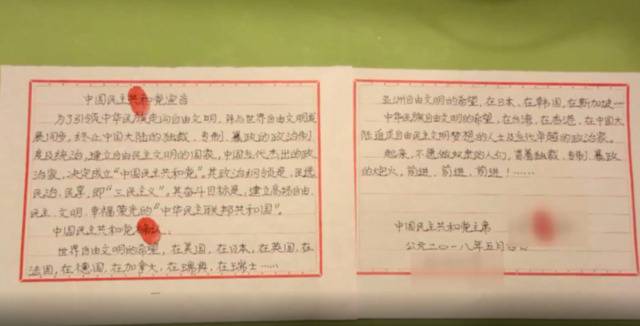 中国民主共和党宣言
为了引领中华民族走向自由文明，并与世界自由文明发
展同步，终止中国大陆的独裁、专制、暴政的政治制
度及统治，建立自由民主文明的国家，中国当代杰出的政
治家，决定成立“中国民主共和党”。其政治纲领是，民选
民治，民享，即“三民主义”。其奋斗目标是，建立高端自由、
民主、文明、幸福荣光的“中华民主联邦共和国”。
中国民主共和党
世界自由文明的希望，在美国，在日本，在英国，在
法国，在德国，在加拿大，在瑞典，在瑞士……
亚洲自由文明的希望，在日本，在韩国，在新加坡……
中华民族自由文明的希望，在台湾，在香港，在中国大
陆追求自由民主文明梦想的人士及当代卓越的政治家。
起来，不愿做奴隶的人们，冒着独裁、专制、暴政
的炮火，前进，前进，前进！……
中国民主共和党主席
公元二〇一八年五月